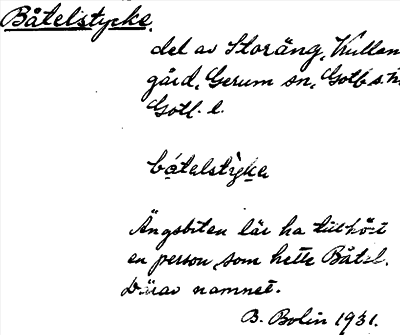 Båtelstycke.
del av Storäng, Kullan
gård, Gerum sn, Gotl. s. h
Gotl. l.
båtelstyke
Ängsbiten lär ha tillhört
en person som hette Båtel.
Därav namnet.
B. Bolin 1931.